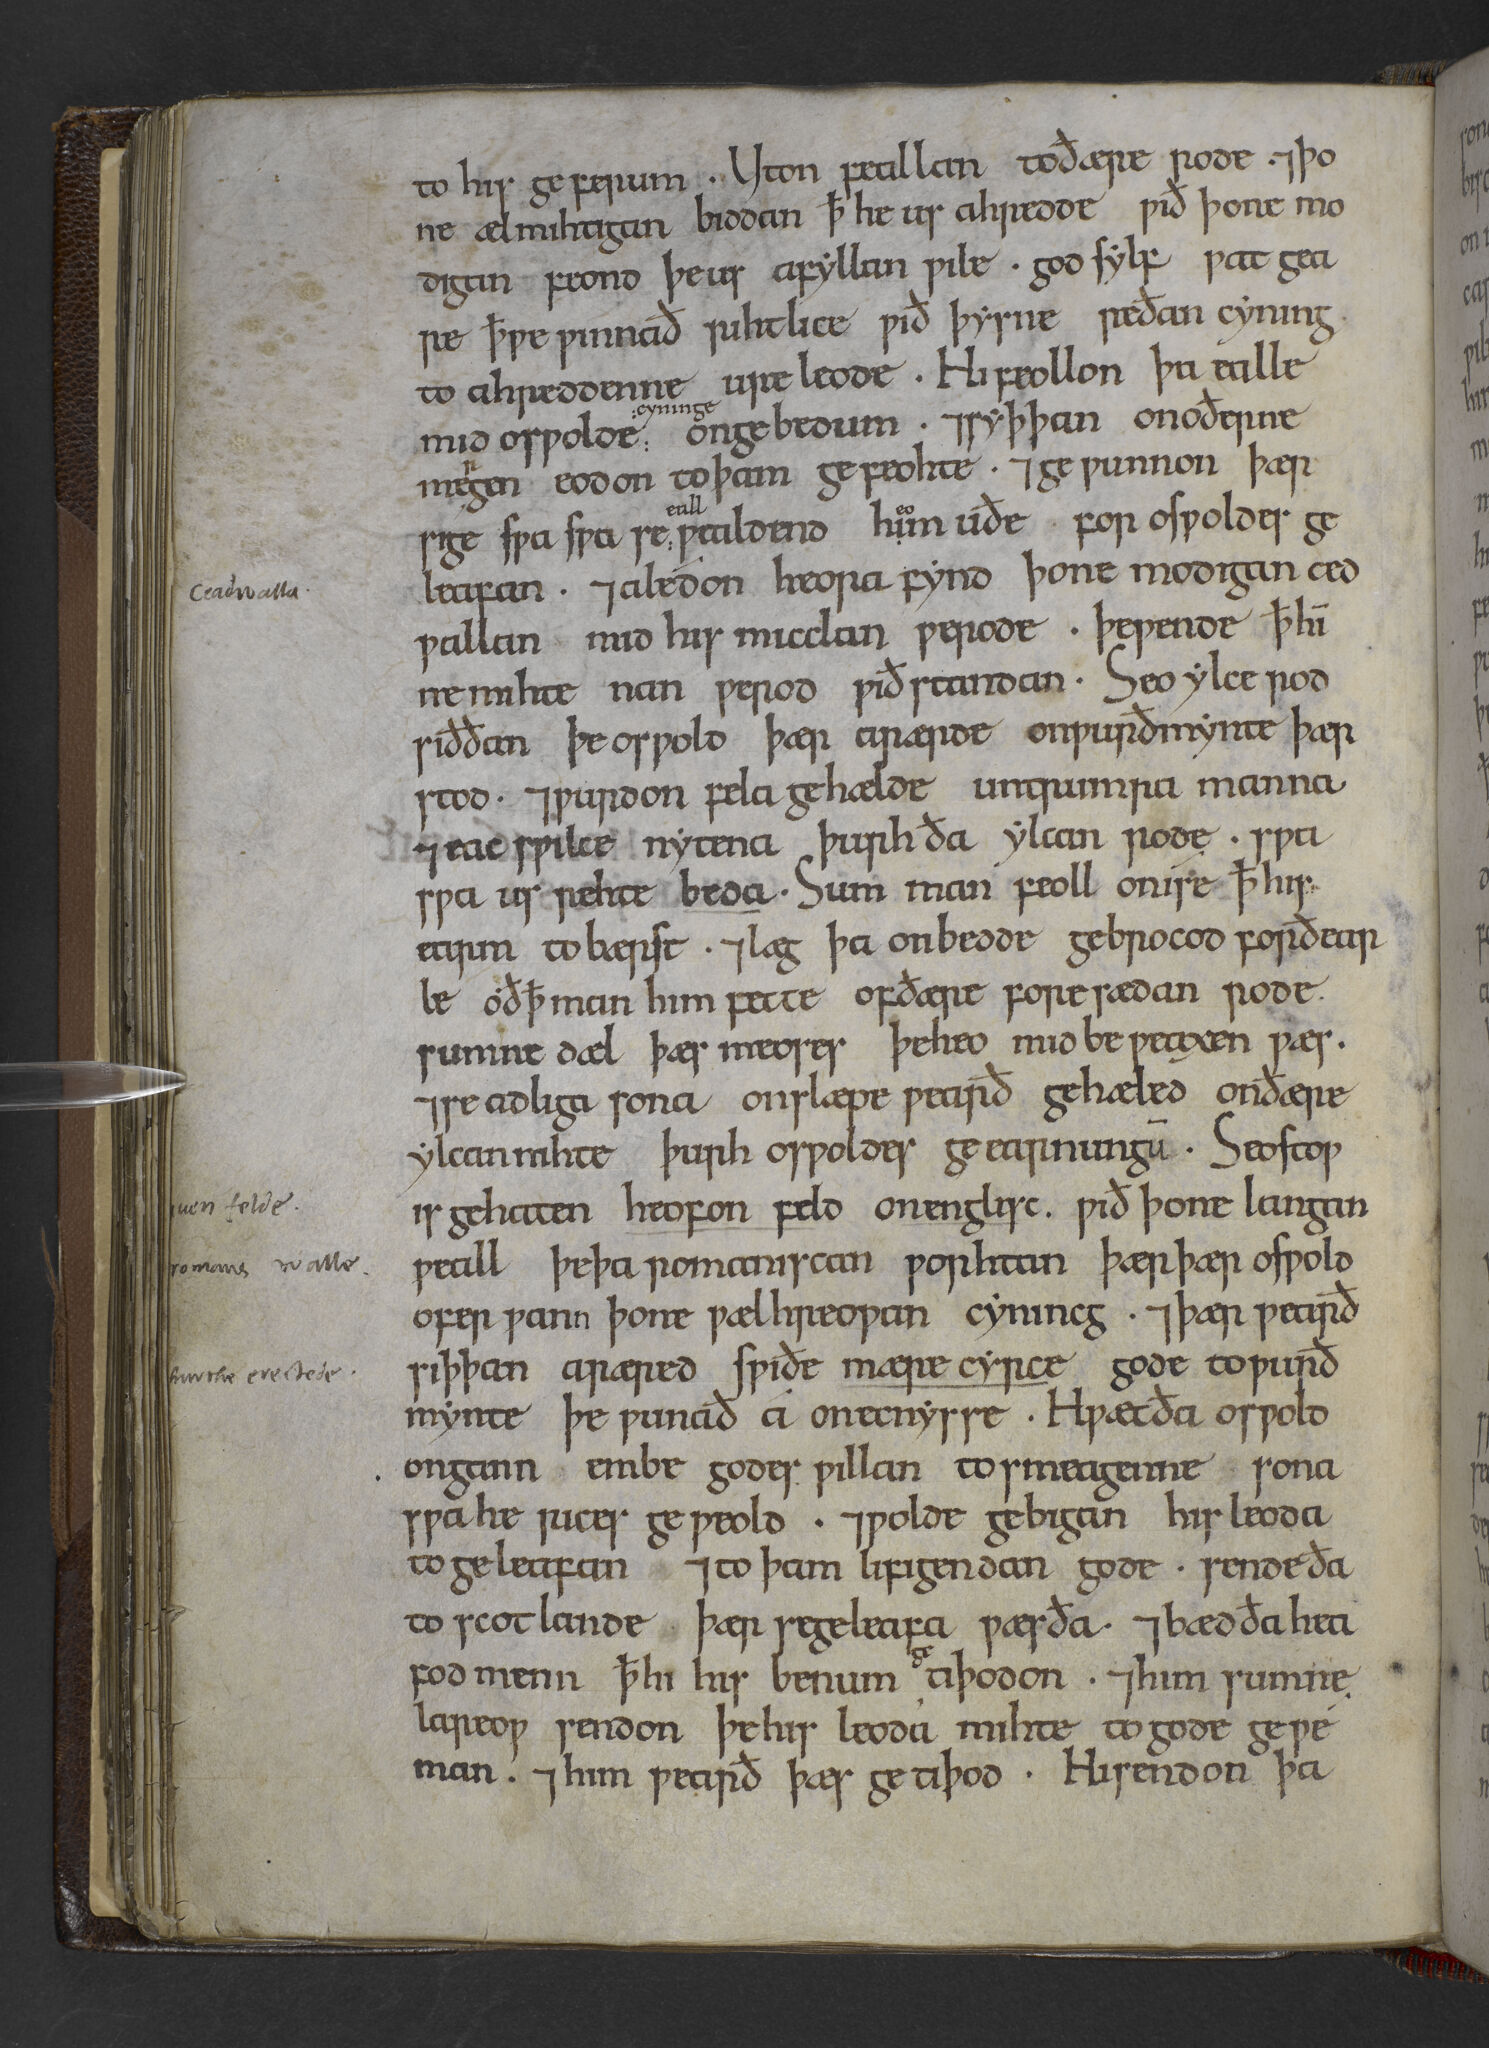 to his geferum . Uton feallan toðære rode . ⁊ þo
ne ælmihtigan biddan ꝥ he us ahredde ƿið þone mo
digan feond þe us afyllan ƿile . god sylf ƿat gea
re ꝥ ƿe ƿinnað rihtlice ƿið þysne reðan cyning
to ahreddenne ure leode . Hi feollon þa ealle
mid osƿolde cyninge on gebedum . ⁊ syþþan on oðerne
mergen eodon to þam gefeohte . ⁊ geƿunnon þær
sige sƿa sƿa se eallƿealdend heom uðe for osƿoldes ge
leafan . ⁊ aledon heora fynd þone modigan ced
Ceadwalla.
ƿallan mid his micclan ƿerode . þe ƿende ꝥ hī
ne mihte nan ƿerod ƿiðstandan . Seo ylce rod
siððan þe osƿold þær arærde on ƿurðmynte þær
stod . ⁊ ƿurdon fela gehælde untrumra manna
⁊ eac sƿilce nytena þurh ða ylcan rode . sƿa
sƿa us rehte beda . Sum man feoll on ise ꝥ his
earm tobærst . ⁊ læg þa on bedde gebrocod forðear
le oð ꝥ man him fette of ðære foresædan rode
sumne dæl þæs meoses þe heo mid beƿeaxen ƿæs .
⁊ se adliga sona on slæpe ƿearð gehæled on ðære
ylcan nihte þurh osƿoldes geearnungū . Seo stoƿ
uen felde.
is gehaten heofon feld on englisc . ƿið þone langan
romans walle.
ƿeall þe þa romaniscan ƿorhtan þær þær osƿold
oferƿann þone ƿælhreoƿan cynincg . ⁊ þær ƿearð
siþþan aræred sƿiðe mære cyrce gode to ƿurð
erectede.
mynte þe ƿunað a on ecnysse . Hƿæt ða osƿold
ongann embe godes ƿillan to smeagenne sona
sƿa he rices geƿeold . ⁊ ƿolde gebigan his leoda
to geleafan ⁊ to þam lifigendan gode . sende ða
to scotlande þær se geleafa ƿæs ða . ⁊ bæd ða hea
fod menn ꝥ hi his benum getiþodon . ⁊ him sumne
lareoƿ sendon þe his leoda mihte to gode geƿe
man . ⁊ him ƿearð þæs getiþod . Hi sendon þa